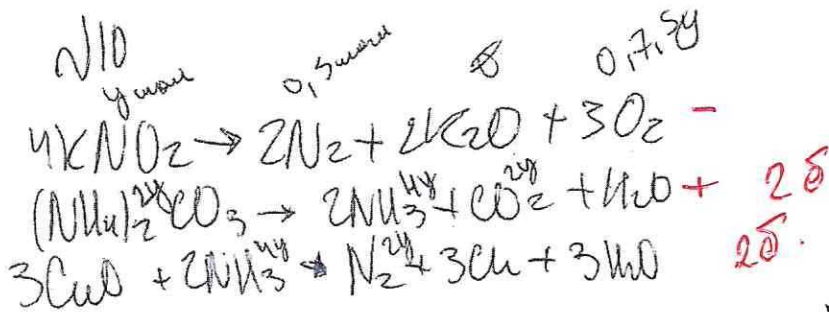 N10
y моль 0,5 моль 0,7,5y
4KNO₂ → 2N₂ + 2K₂O + 3O₂ -
(NH₄)₂CO₃ 2y → 2NH₃ 4y + CO₂ 2y + H₂O + 2б
3CuO + 2NH₃ 4y → N₂ 2y + 3Cu + 3H₂O 2б.